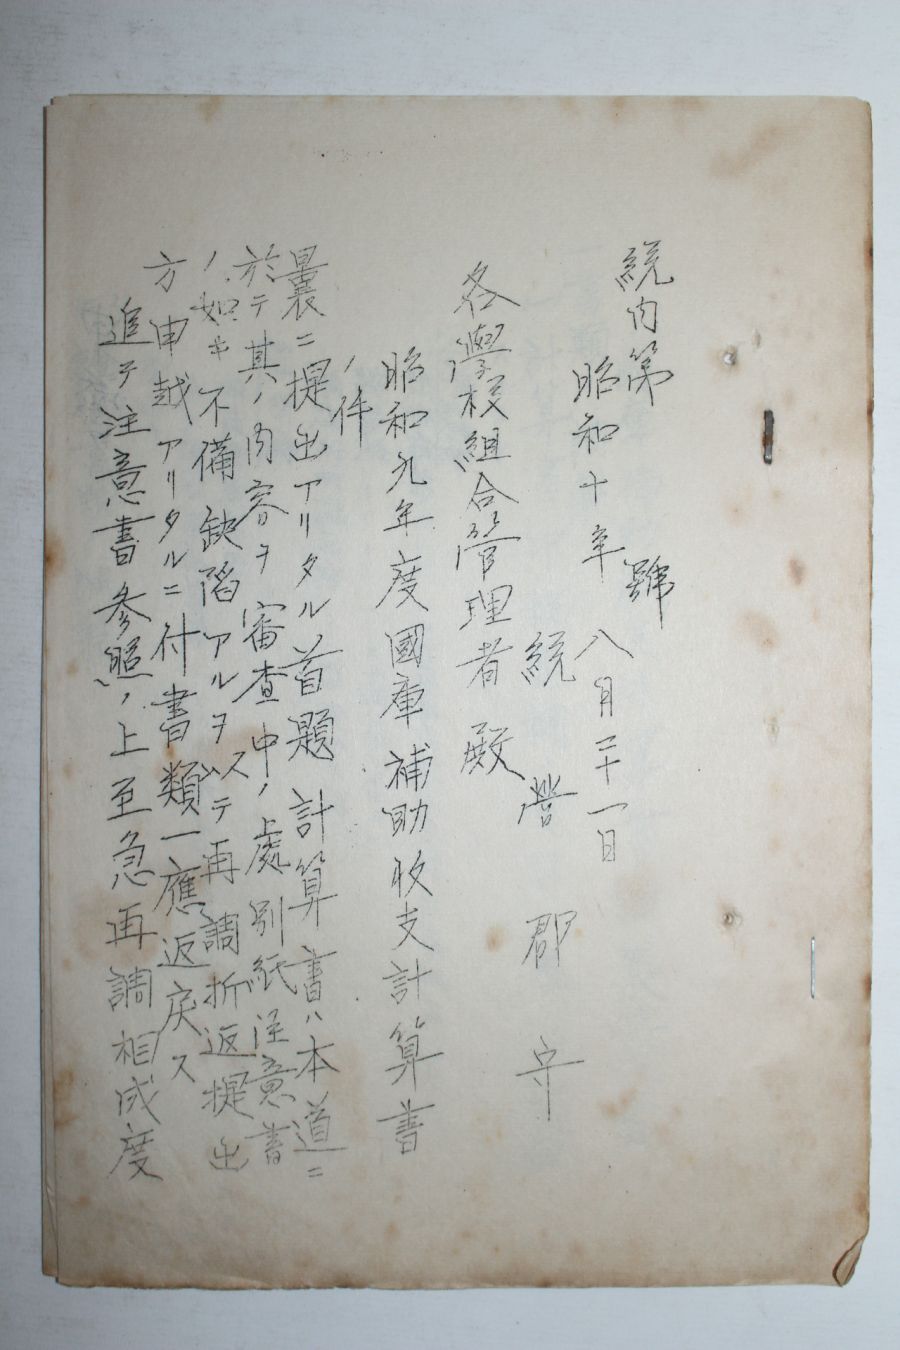 統内第　　　號
昭和十年八月二十一日
統營郡守
各學校組合管理者殿
昭和九年度國庫補助收支計算書
ノ件
曩ニ提出アリタル首題計算書ハ本道ニ
於テ其ノ內容ヲ審査中ノ處別紙注意書
ノ如キ不備缺陷アルヲ以テ再調折返提出
方申越アリタルニ付書類一應返戾ス
追テ注意書參照ノ上至急再調相成度